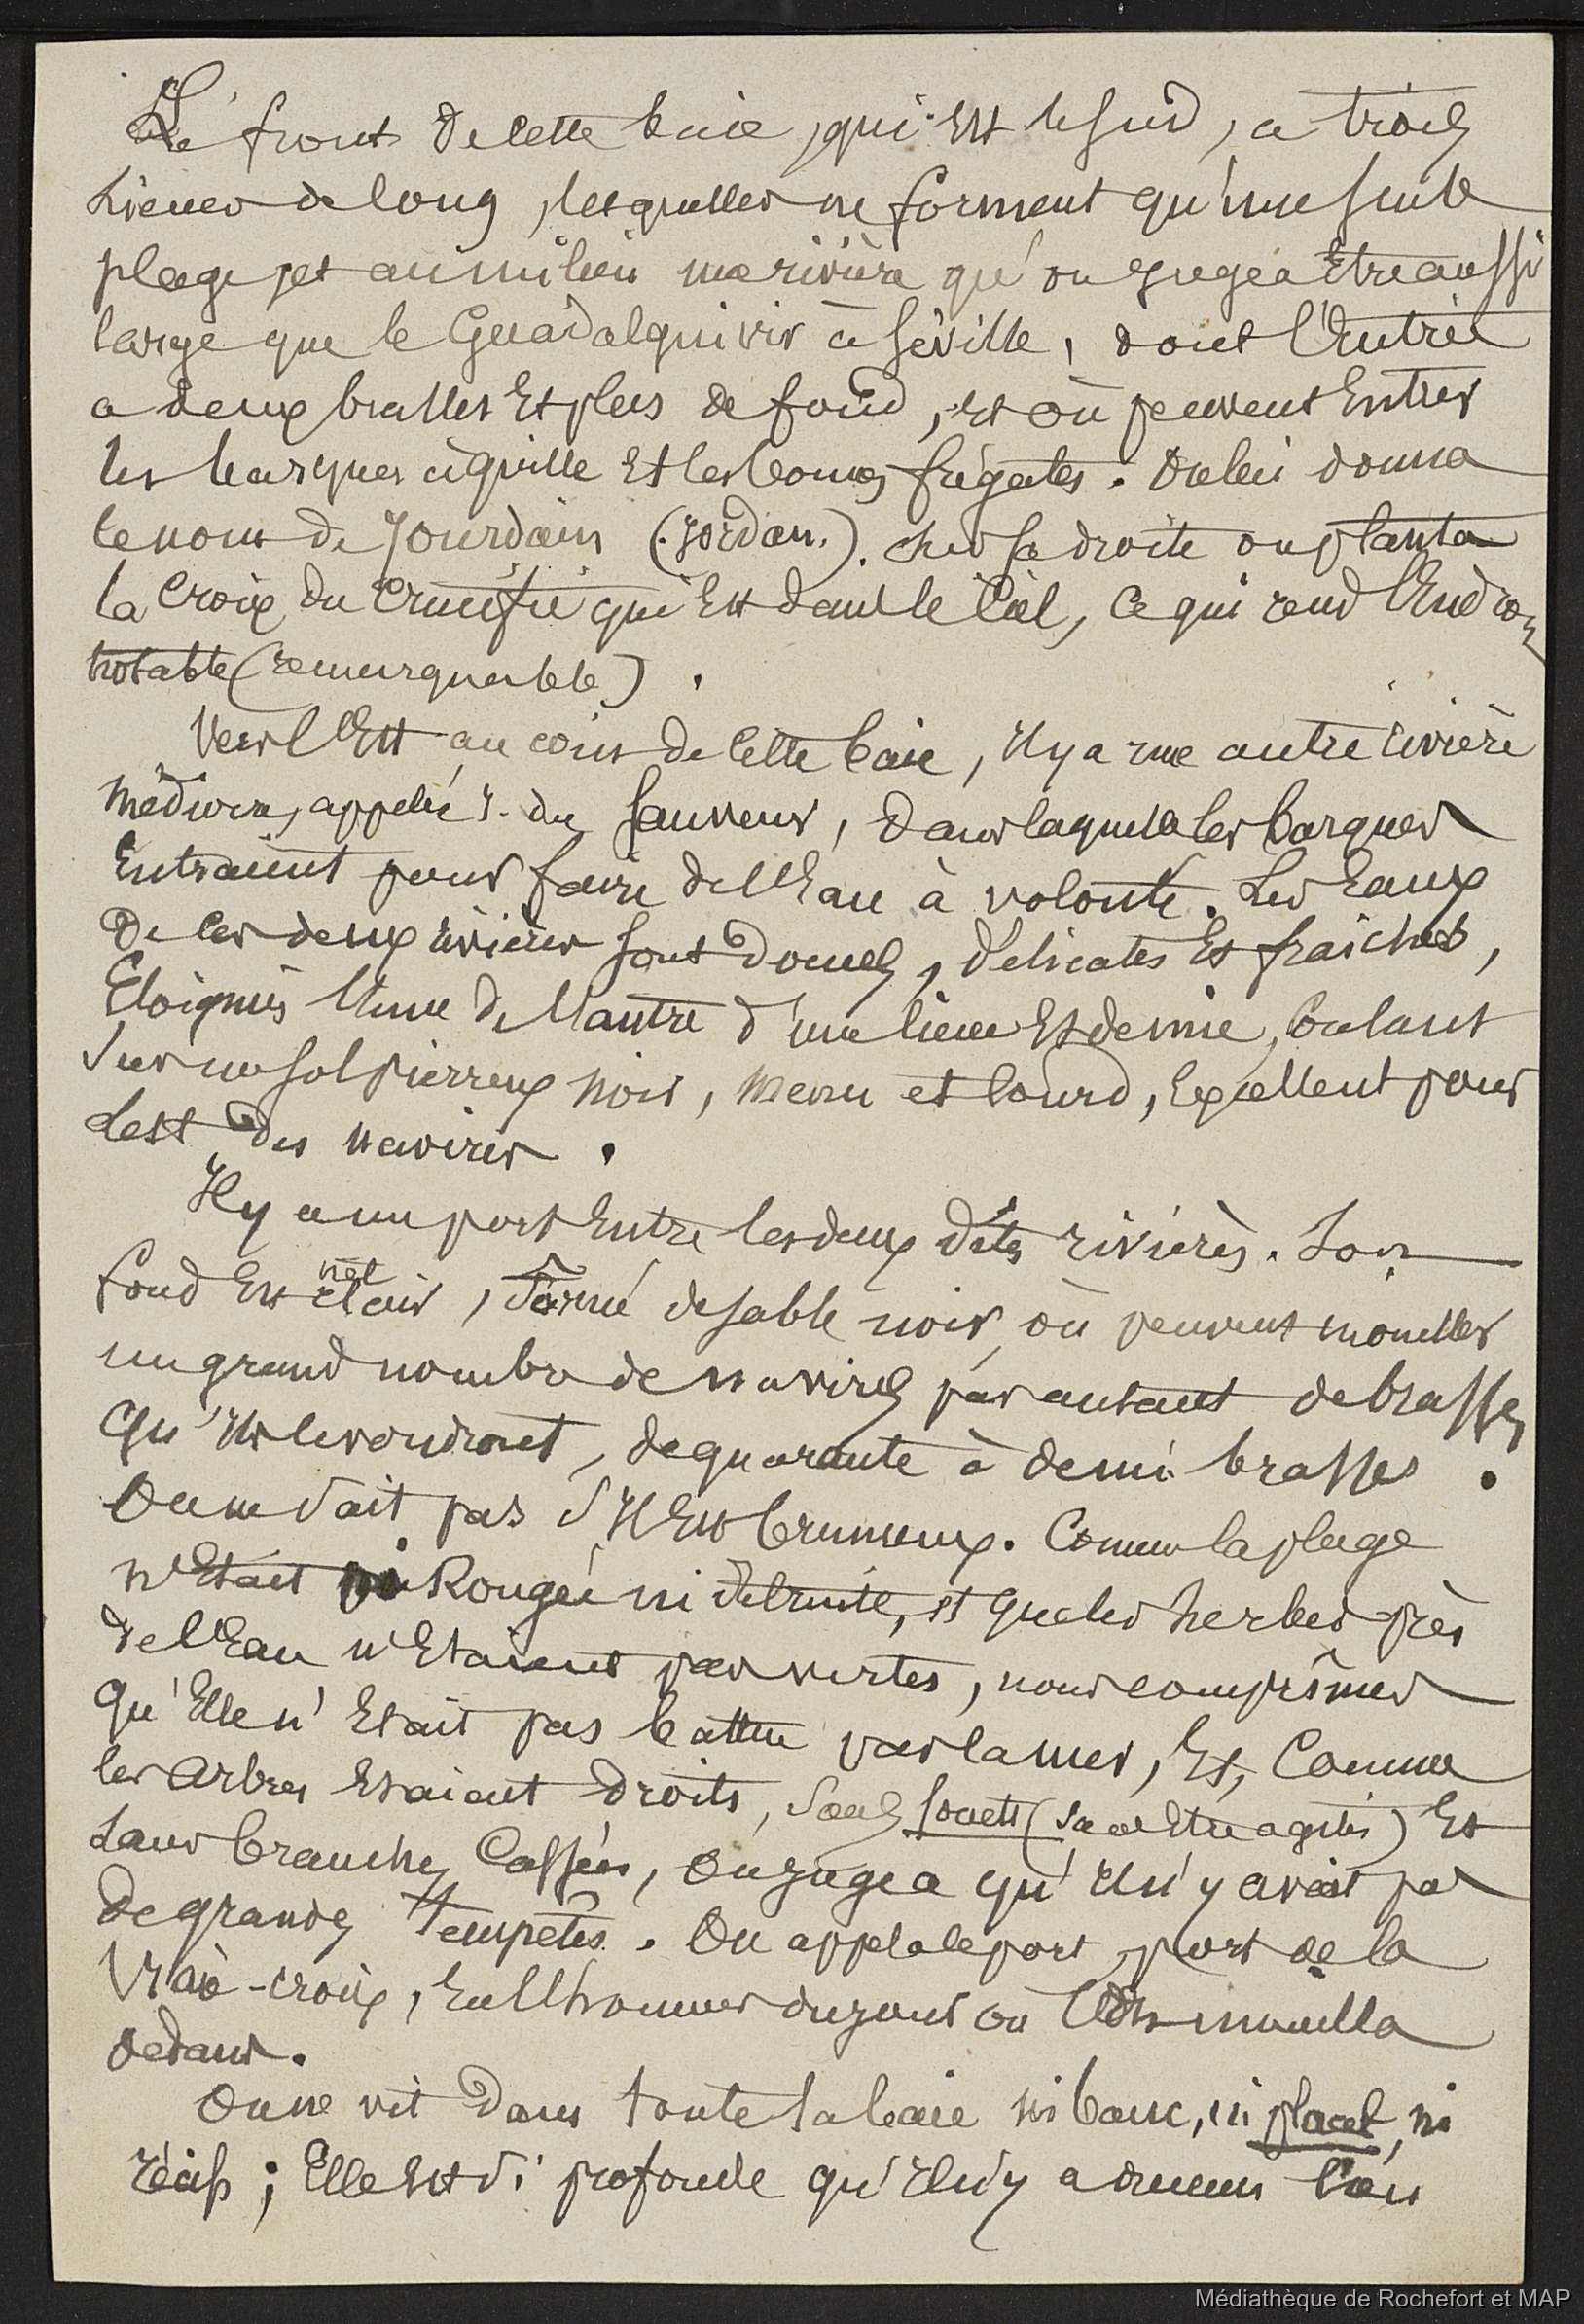 Le front de cette baie, qui est le sud, a trois
lieues de long, lesquelles ne forment qu'une seule
plage, et au milieu une rivière qu'on jugea être aussi
large que le Guadalquivir à Séville, dont l'entrée
a deux brasses et plus de fond, et où peuvent entrer
les barques à quille et les bonnes frégates. On lui donna
le nom de Jourdain (Jordan.). Sur sa droite on planta
la croix du Crucifié qui est dans le Ciel, ce qui rend l'endroit
notable (remarquable).
Vers l'Est au coin de cette baie, il y a une autre rivière
médiocre, appelée du Sauveur, dans laquelle les barques
entraient pour faire de l'eau à volonté. Les eaux
de ces deux rivières sont douces, délicates et fraîches,
Eloignées l'une de l'autre d'une lieue et demie, coulant
sur un sol pierreux noir, menu et lourd, excellent pour
lest des navires.
Il y a un port entre les deux dites rivières. Son
fond est clair, net, formé de sable noir, où peuvent mouiller
un grand nombre de navires par autant de brasses
qu'ils le voudront, de quarante à demi brasses.
On ne sait pas s'il est brumeux. Comme la plage
n'était ni Rongée ni détruite, et que les herbes près
de l'Eau n'étaient pas vertes, nous comprîmes
qu'Elle n'était pas battue par la mer, Et, Comme
les arbres étaient droits, sans fouets (sans être agités) Et
sans branches Cassées, on jugea qu'il n'y avait pas
de grandes Tempêtes. On appela le port, port de la
Vraie-croix, en l'honneur du jour où l'on mouilla
dedans.
On ne vit dans toute la baie ni banc, ni placel, ni
récifs ; Elle est si profonde qu'il n'y a aucun lieu
Médiathèque de Rochefort et MAP